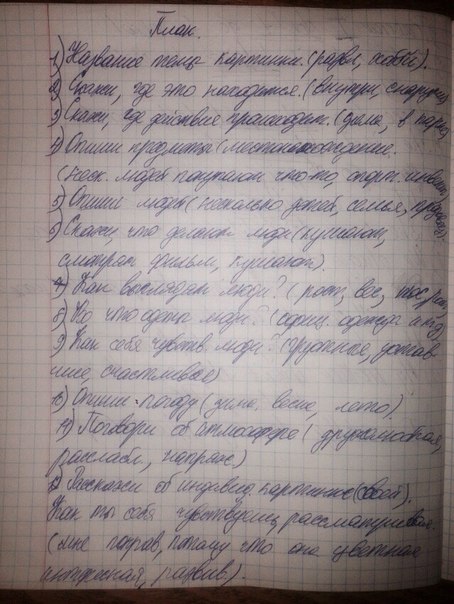 План.
1) Название темы картинки. (развл., хобби).
2) Скажи, где это находится. (внутри, снаружи)
3) Скажи, где действие происходит. (дома, в парке)
4) Опиши предметы (местонахождение.
(неск. людей покупают что-то, спорт. инвен
5) Опиши людей (несколько детей, семья, продавец)
6) Скажи, что делают люди (кушают,
смотрят фильм, кушают).
7) Как выглядят люди? (рост, вес,
8) Во что одеты люди? (одежда и
9) Как себя чувств. люди? (грустные, устав-
шие, счастливые)
10) Опиши погоду (зима, весна, лето)
11) Поговори об атмосфере (дружелюбная,
расслабл., напряж.)
12) Расскажи об индивид. картинке (своей).
Как ты себя чувствуешь, рассматривая.
(мне нрав., потому что она цветная
интересная, развив.).